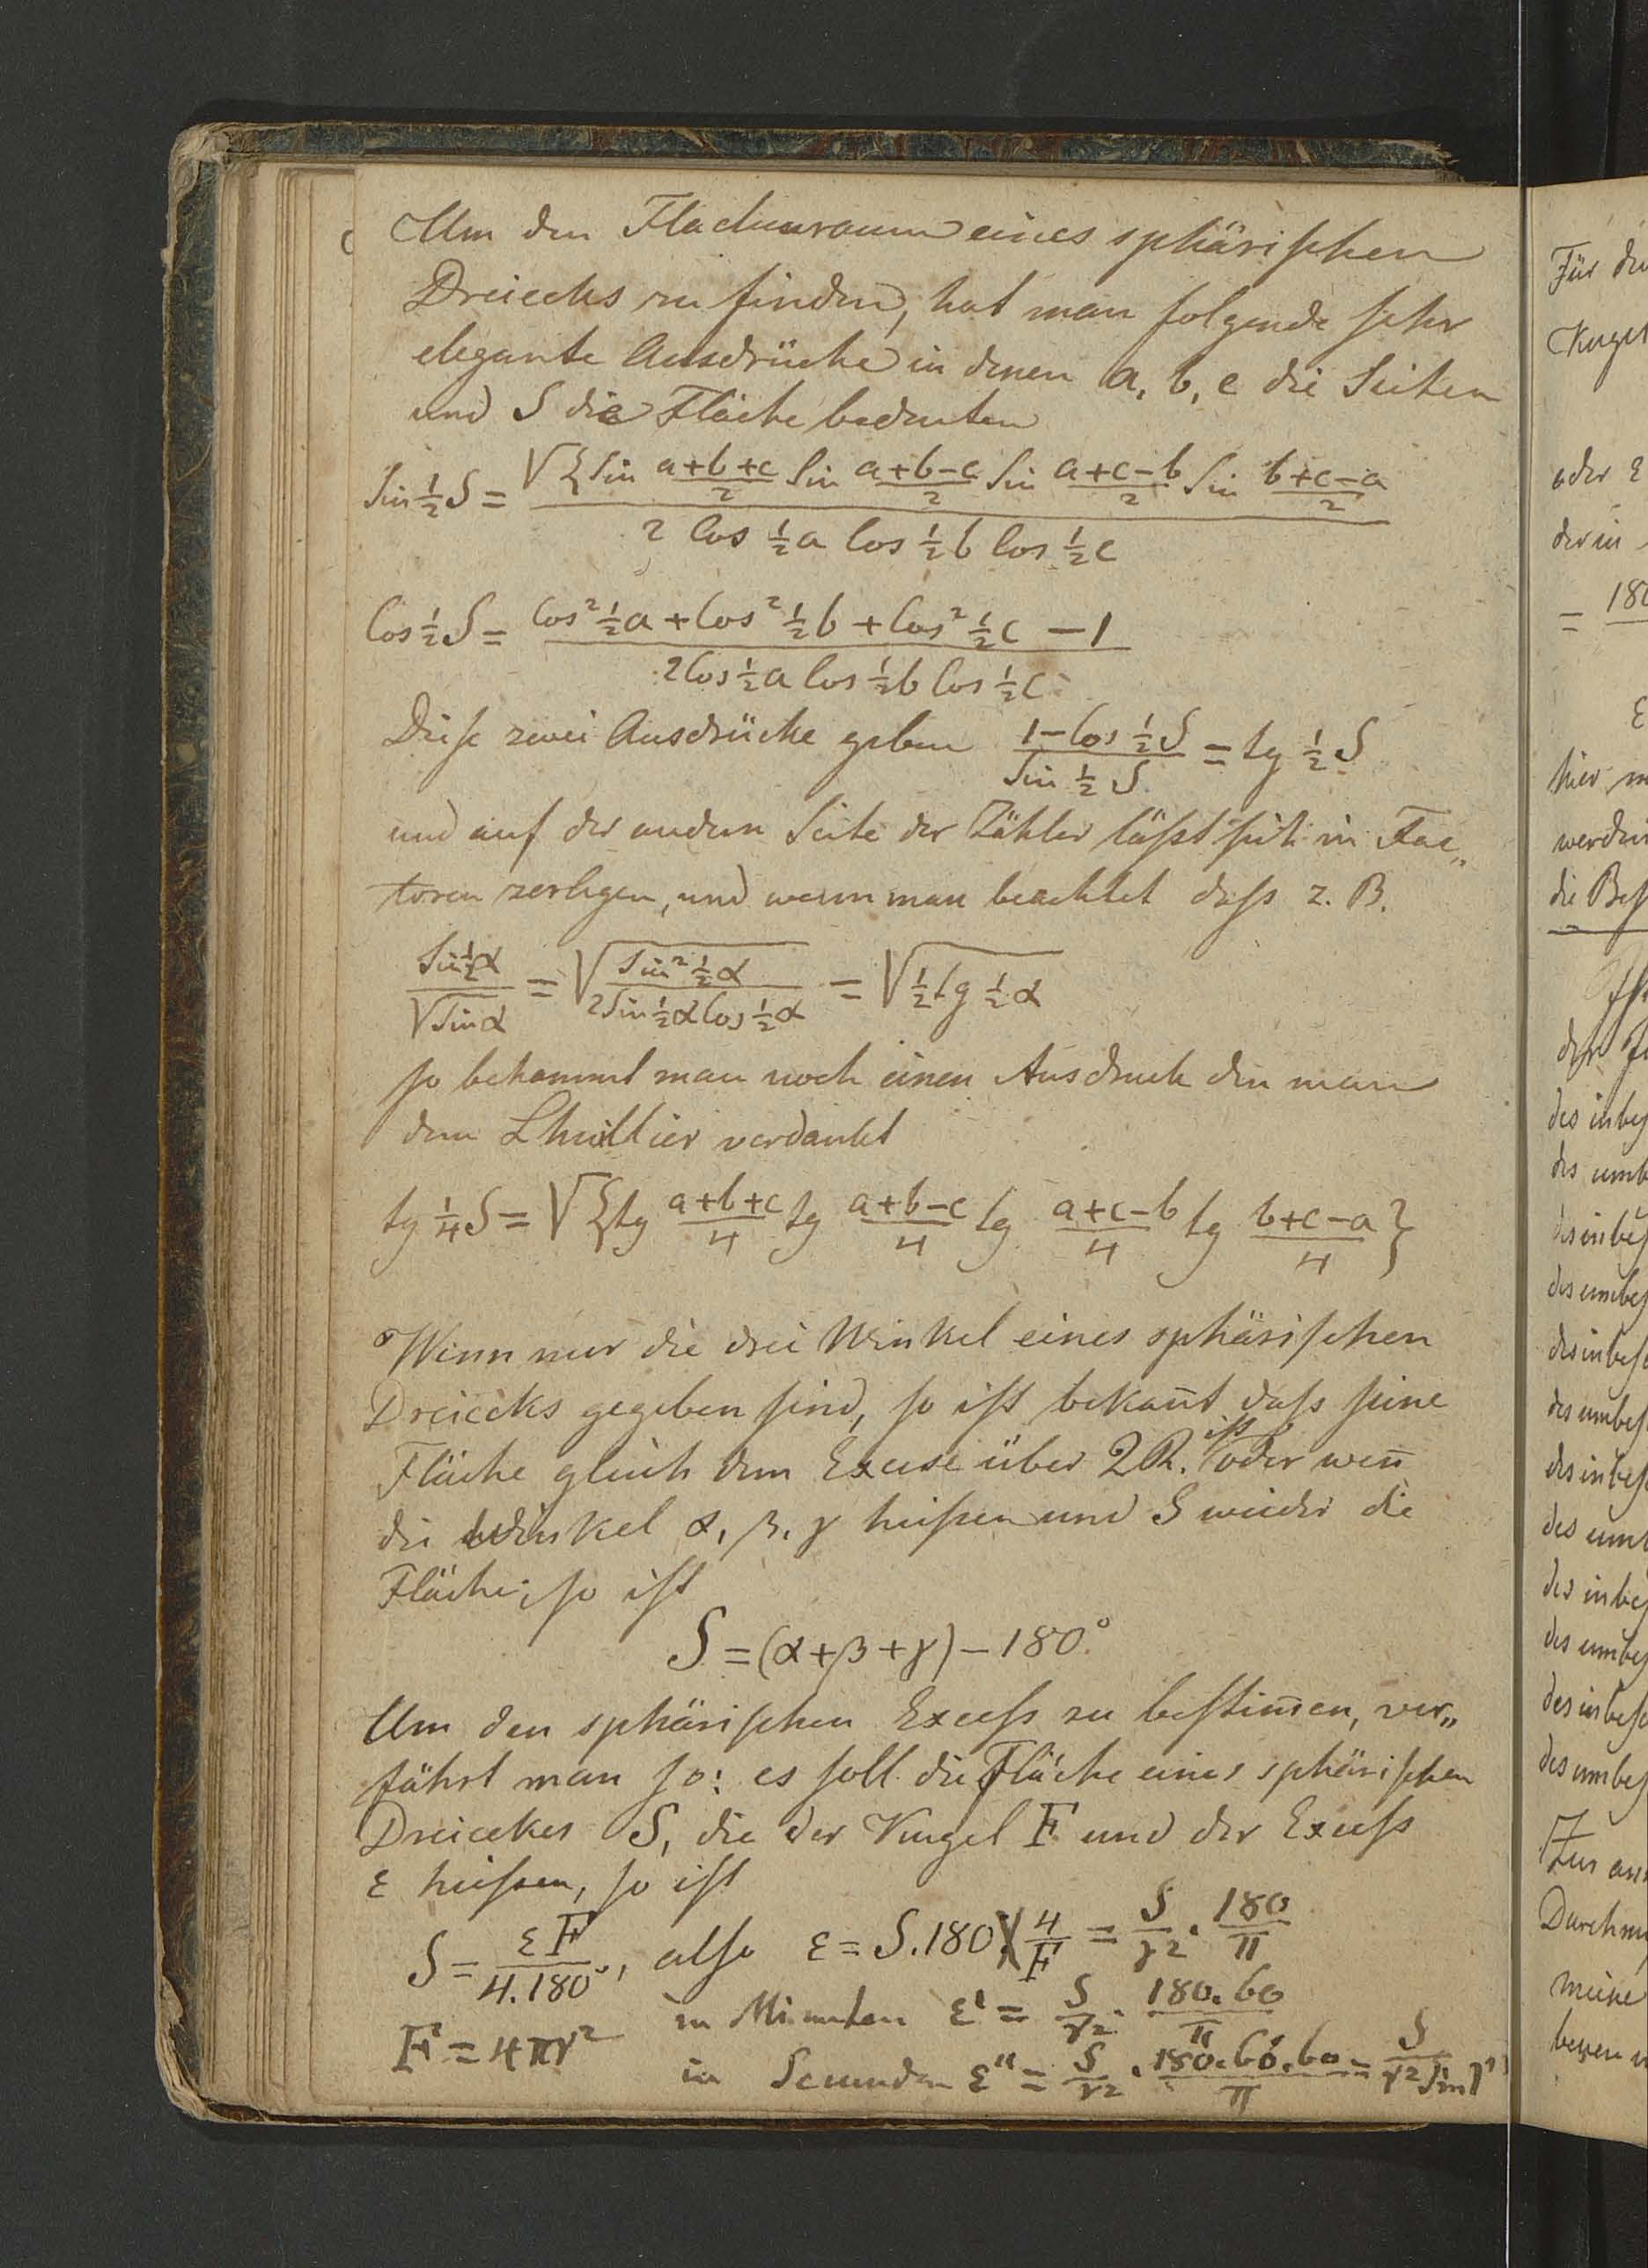 Um den Flachenraum eines sphärischen
Dreiecks zu finden, hat man folgende sehr
elegante Ausdrücke in denen a, b, c die Seiten
und S die Fläche bedeuten
Sin ½ S = √{Sin (a+b+c)/2 Sin (a+b-c)/2 Sin (a+c-b)/2 Sin (b+c-a)/2 / 2 Cos ½a Cos ½b Cos ½c
Cos ½ S = Cos² ½a + Cos² ½b + Cos² ½c - 1 / 2Cos ½a Cos ½b Cos ½c
Diese zwei Ausdrücke geben (1-Cos ½ S)/(Sin ½ S) = tg ½ S
und auf der andern Seite der Zähler läßt sich in Fac„
toren zerlegen, und wenn man beachtet daß z. B.
Sin ½α / √Sin α = √(Sin² ½α / 2Sin ½α Cos ½α) = √(½ tg ½α)
so bekommt man noch einen Ausdruck den man
dem Lhuillier verdankt
tg ¼ S = √{tg (a+b+c)/4 tg (a+b-c)/4 tg (a+c-b)/4 tg (b+c-a)/4}
Wenn nur die drei Winkel eines sphärischen
Dreiecks gegeben sind, so ist bekan̄t daß seine
Fläche gleich dem Excese über 2R. ist oder wen̄
die Winkel α, β, γ heißen und S wieder die
Fläche; so ist
S = (α+β+γ) - 180°
Um den sphärischen Exceß zu bestim̄en, ver„
fährt man so: es soll die Fläche eines sphärischen
Dreieckes S, die der Kugel F und der Exceß
ε heißen, so ist
S = εF / 4.180°, also ε = S.180. 4/F = S/r² . 180/π
F = 4πr² in Minuten ε' = S/r² . 180.60/π
in Secunden ε'' = S/r² . 180.60.60/π = S/r² Sin 1''
Für
oder ε
der in
= 180
hier
werden
die
des
des
des inbes
des umbes
des inbes
des umbes
des inbes
des
des inbes
des umbes
des inbes
des umbes
Zur
Durchm
meine